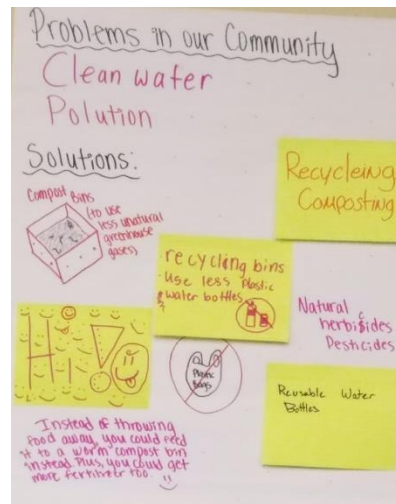 Problems in our Community
Clean water
Polution
Solutions:
Recycleing
Composting
Compost Bins
(to use
less unatural
greenhouse
gases)
recycling bins
Use less Plastic
water bottles
Natural
herbisides
Pesticides
HI!
Plastic
Bags
Reusable Water
Bottles
Instead of throwing
food away, you could feed
it to a worm compost bin
instead. Plus, you could get
more fertilizer too